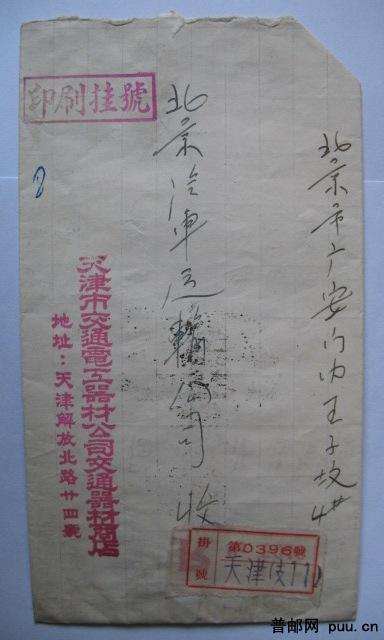 北京市广安门内王子坟4#
北京汽車运輸公司 收
印刷挂號
天津市交通電工器材公司交通器材商店
地址：天津解放北路廿四號
掛號
第0396號
天津
8
普邮网 puu.cn